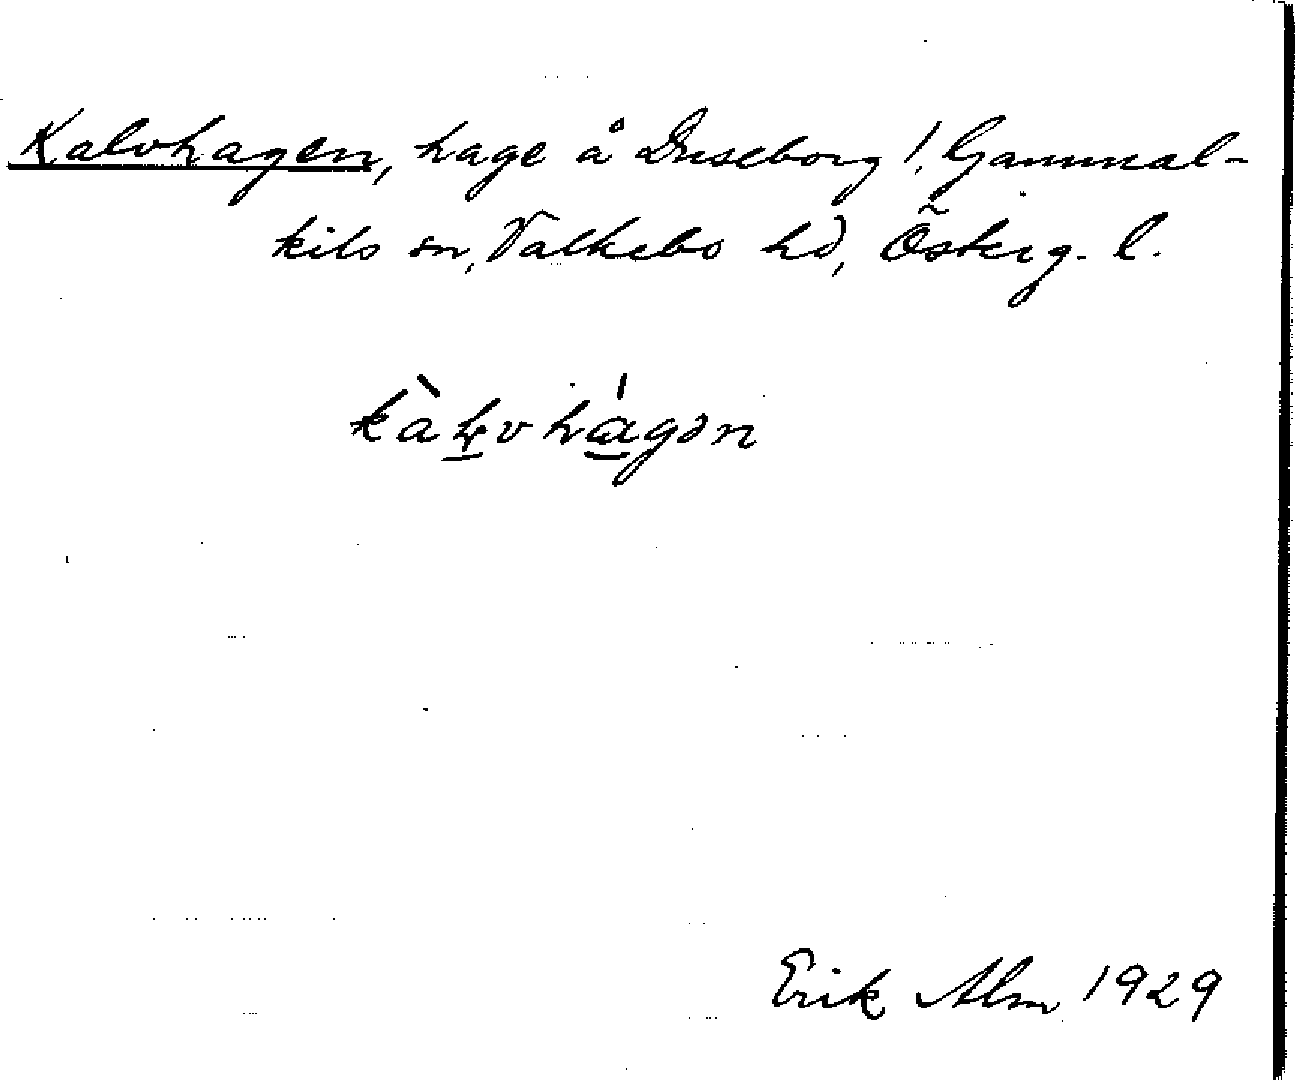 Kalvhagen, hage å Duseborg /. Gammal-
kils sn, Valkebo hd, Österg. l.
Erik Alm 1929